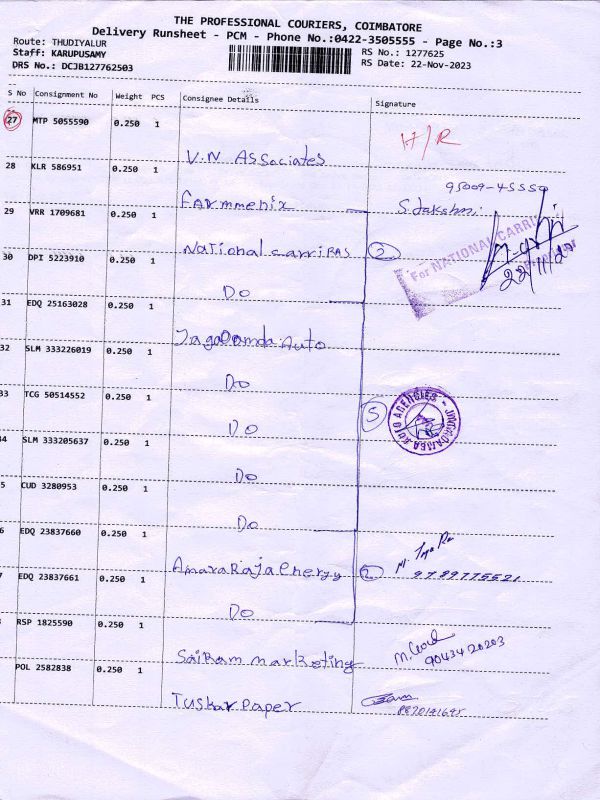 THE PROFESSIONAL COURIERS, COIMBATORE
Delivery Runsheet - PCM - Phone No.:0422-3505555 - Page No.:3
Route: THUDIYALUR
Staff: KARUPUSAMY
DRS No.: DCJB127762503
RS No.: 1277625
RS Date: 22-Nov-2023
S No Consignment No Weight PCS Consignee Details Signature
27 MTP 5055590 0.250 1
V.N ASSociates H/R
28 KLR 586951 0.250 1
FARmmenix 95009-45559
29 VRR 1709681 0.250 1
National carriRAS 2
For NATIONAL CARRI
22/11/23
30 DPI 5223910 0.250 1
DO
31 EDQ 25163028 0.250 1
JagaDamda Auto
32 SLM 333226019 0.250 1
DO
33 TCG 50514552 0.250 1
DO 5
JAGADAMBA AUTO AGENCIES
34 SLM 333205637 0.250 1
DO
5 CUD 3280953 0.250 1
DO
6 EDQ 23837660 0.250 1
AmaraRaja energy 2
9789775521
7 EDQ 23837661 0.250 1
DO
RSP 1825590 0.250 1
SaiRam marketing
9043420203
POL 2582838 0.250 1
Tuskar paper